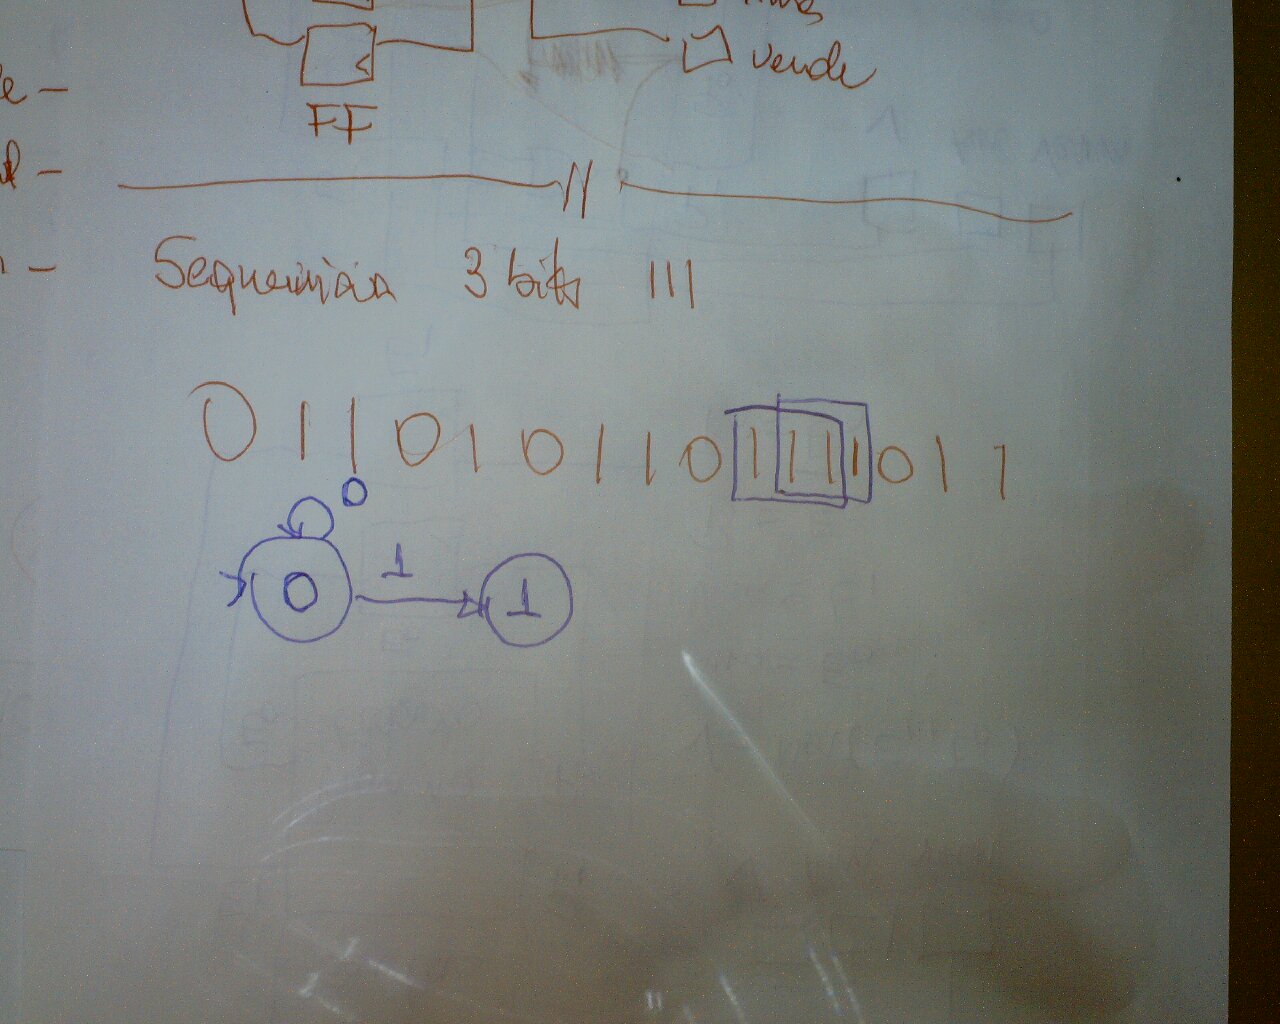 verde
FF
Sequência 3 bits 111
0 1 1 0 1 0 1 1 0 1 1 1 1 0 1 1
0
1
0 1